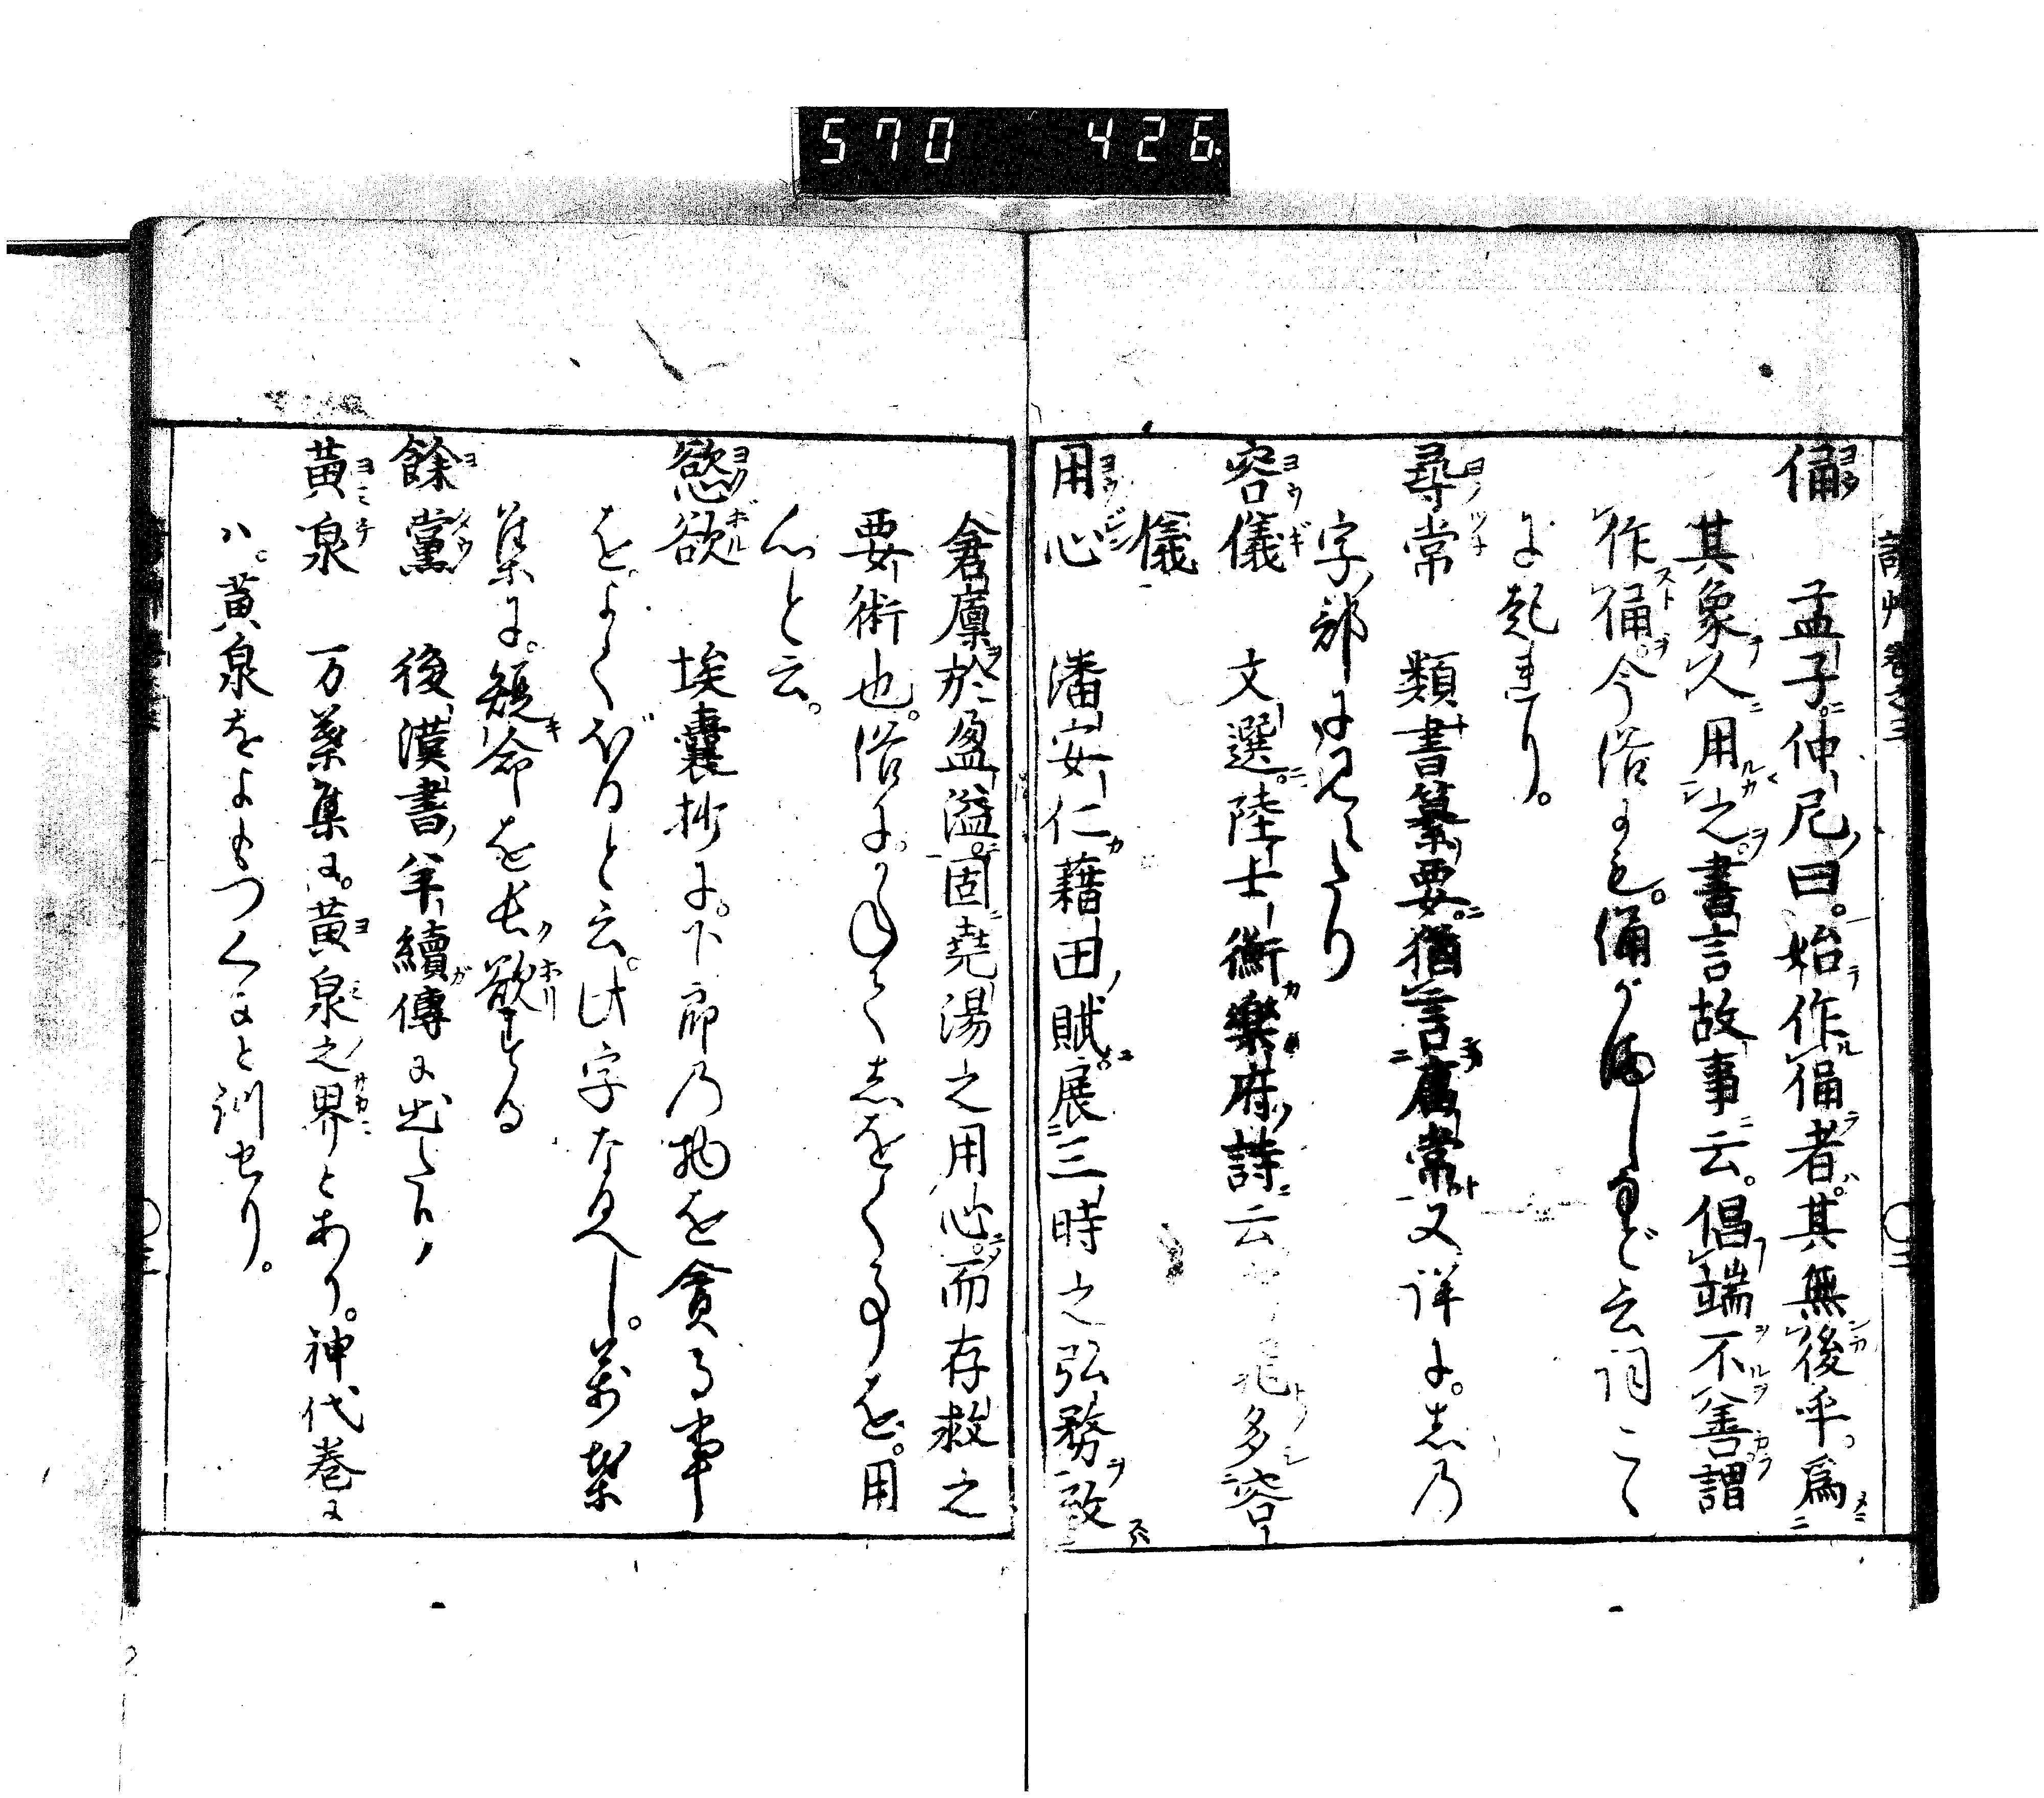 570 426
俑 孟子仲尼曰。始作俑者。其無後乎。爲
其象人用之。書言故事云。倡端不善謂
作俑。今俗にも。俑がましきなど云詞こゝ
に起れり。
尋常 類書纂要。猶言庸常又詳に。志乃
字部に見えたり
容儀 文選。陸士衡樂府詩云 多容
儀
用心 潘安仁藉田賦。展三時之弘務致
倉廩於盈溢。固堯湯之用心。而存救之
要術也。俗に。かねて志をくる事を。用
心と云。
慾欲 埃囊抄に。下﨟乃物を貪る事
を。よくぼると云。此字なるべし。萬葉
集に。短命を長欲する
餘黨 後漢書羊續傳に出たり
黃泉 万葉集に。黃泉之界とあり。神代巻に
ハ。黃泉をよもつくにと訓せり。